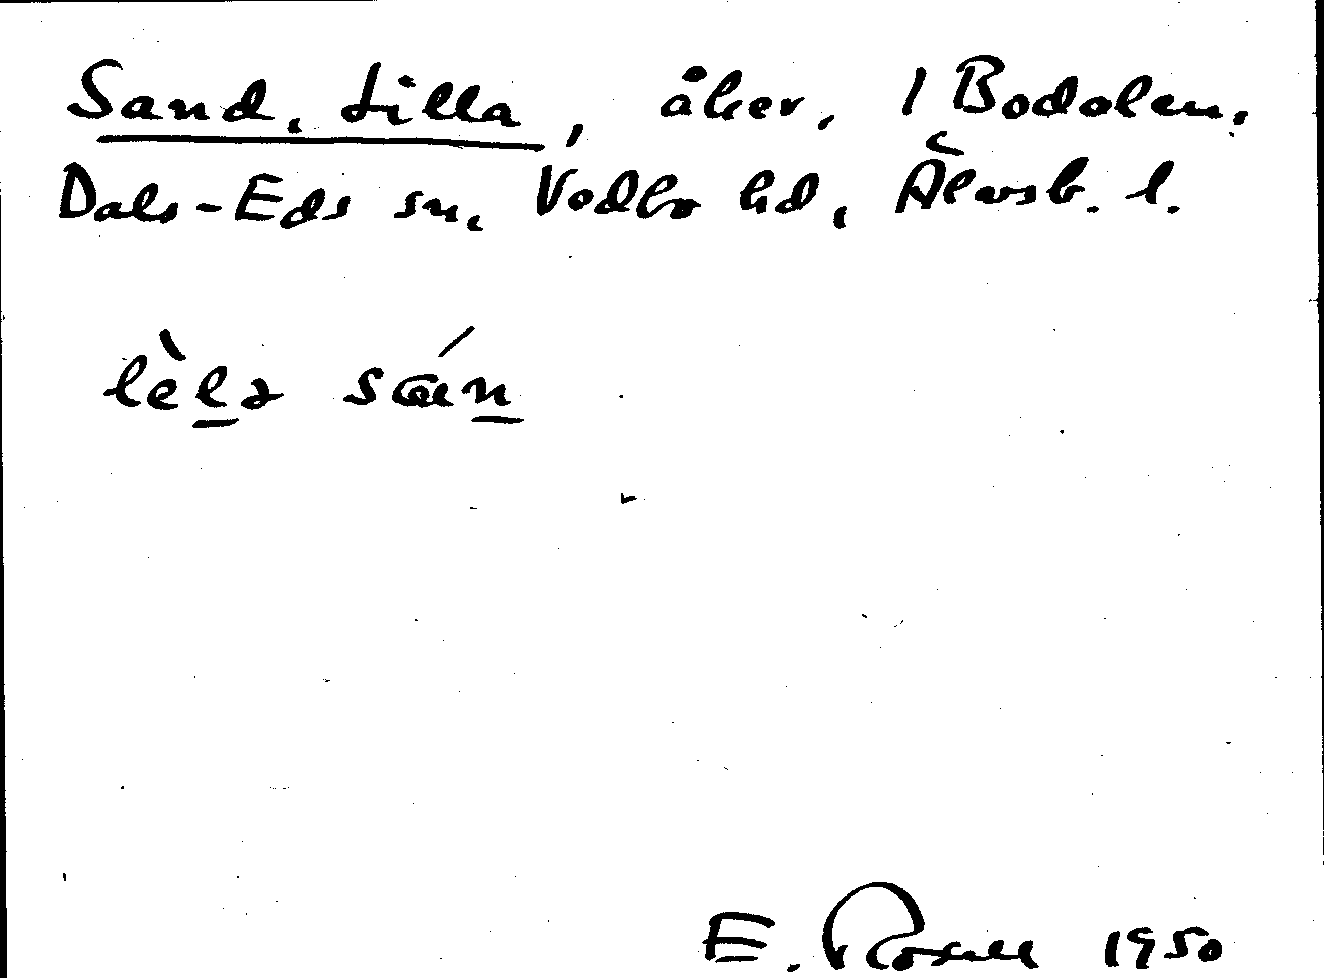 Sand, Lilla, åker, 1 Bodalen.
Dals-Eds sn, Vedbo hd, Älvsb. l.
lèlə sán
E. Rosell 1950